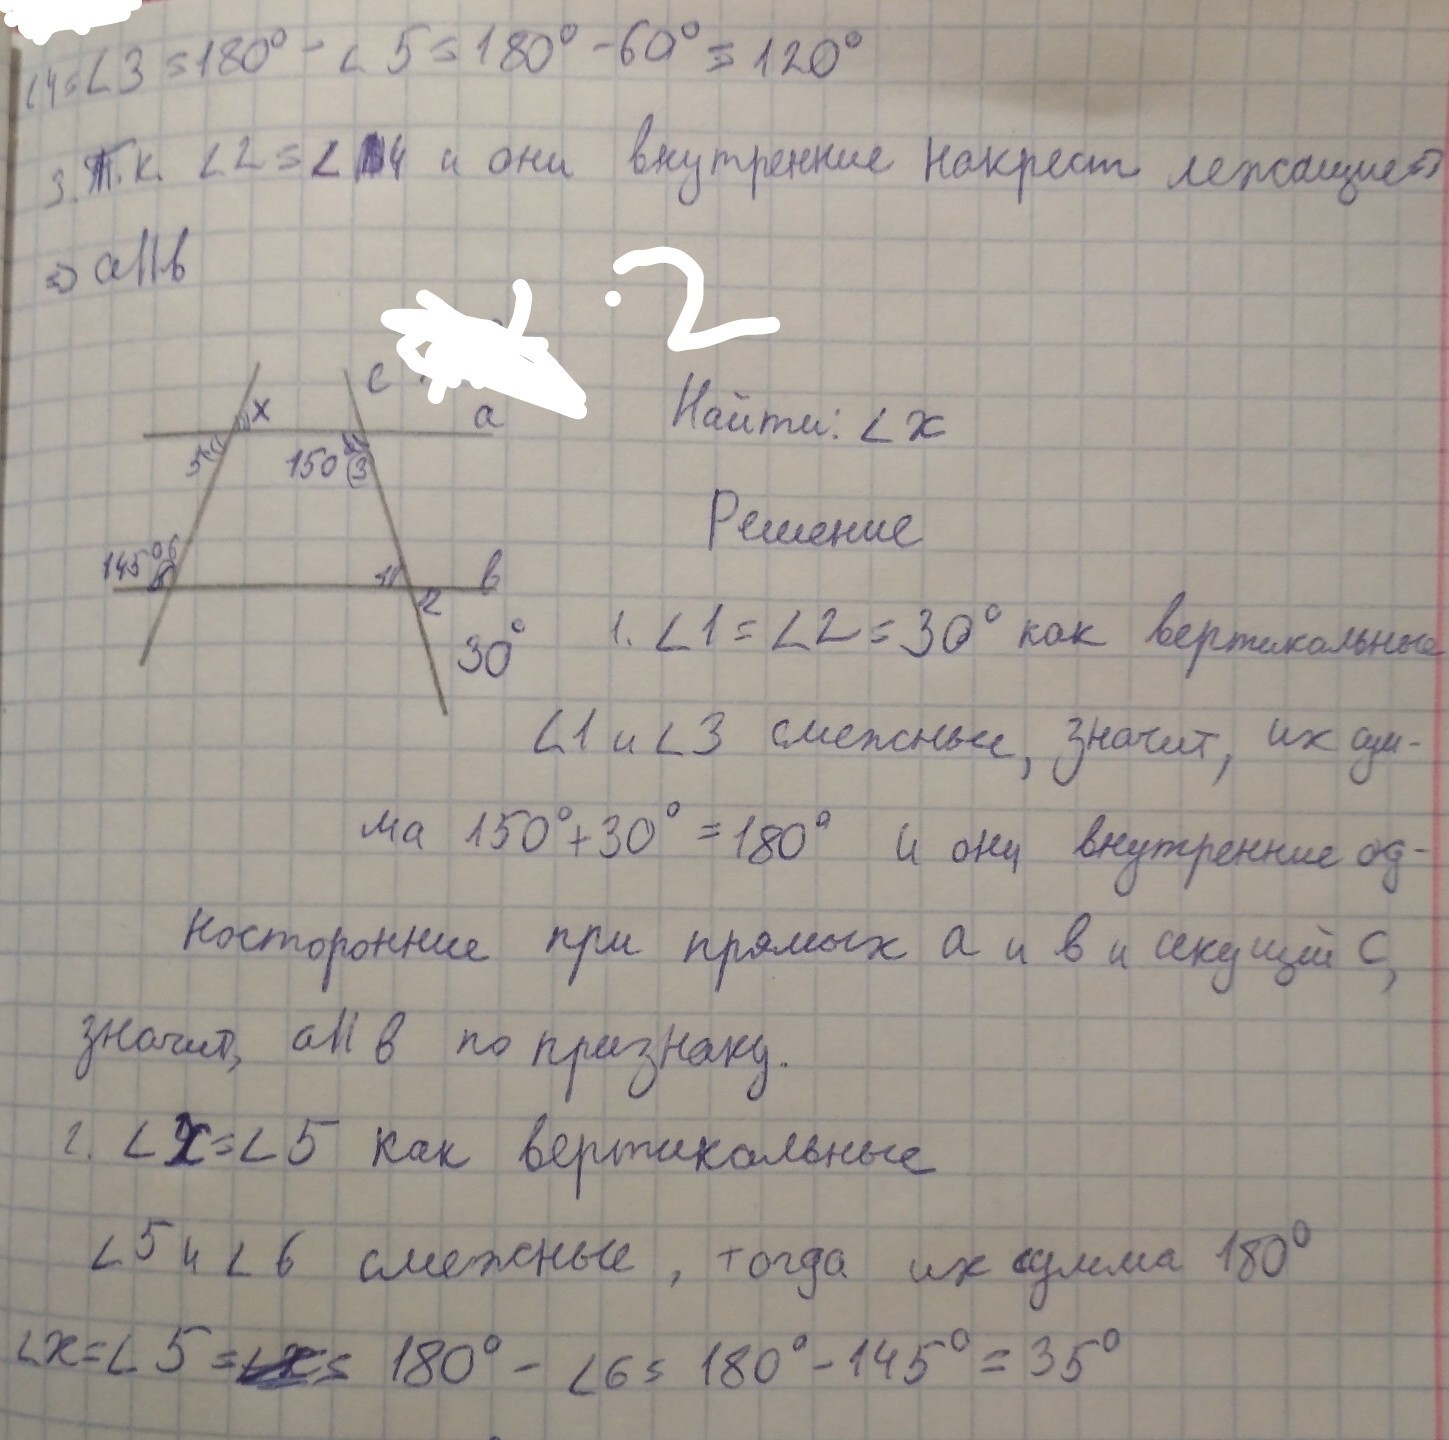 ∠4=∠3=180°-∠5=180°-60°=120°
3. Т.к. ∠2=∠4 и они внутренние накрест лежащие⇒
⇒ a||b
.2
c
x
a
Найти: ∠x
5
150°
3
Решение
145°
6
1
b
2
30°
1. ∠1=∠2=30° как вертикальные
∠1 и ∠3 смежные, значит, их сум-
ма 150°+30°=180° и они внутренние од-
носторонние при прямых a и b и секущей c,
значит, a||b по признаку.
2. ∠x=∠5 как вертикальные
∠5 и ∠6 смежные, тогда их сумма 180°
∠x=∠5= = 180°-∠6=180°-145°=35°